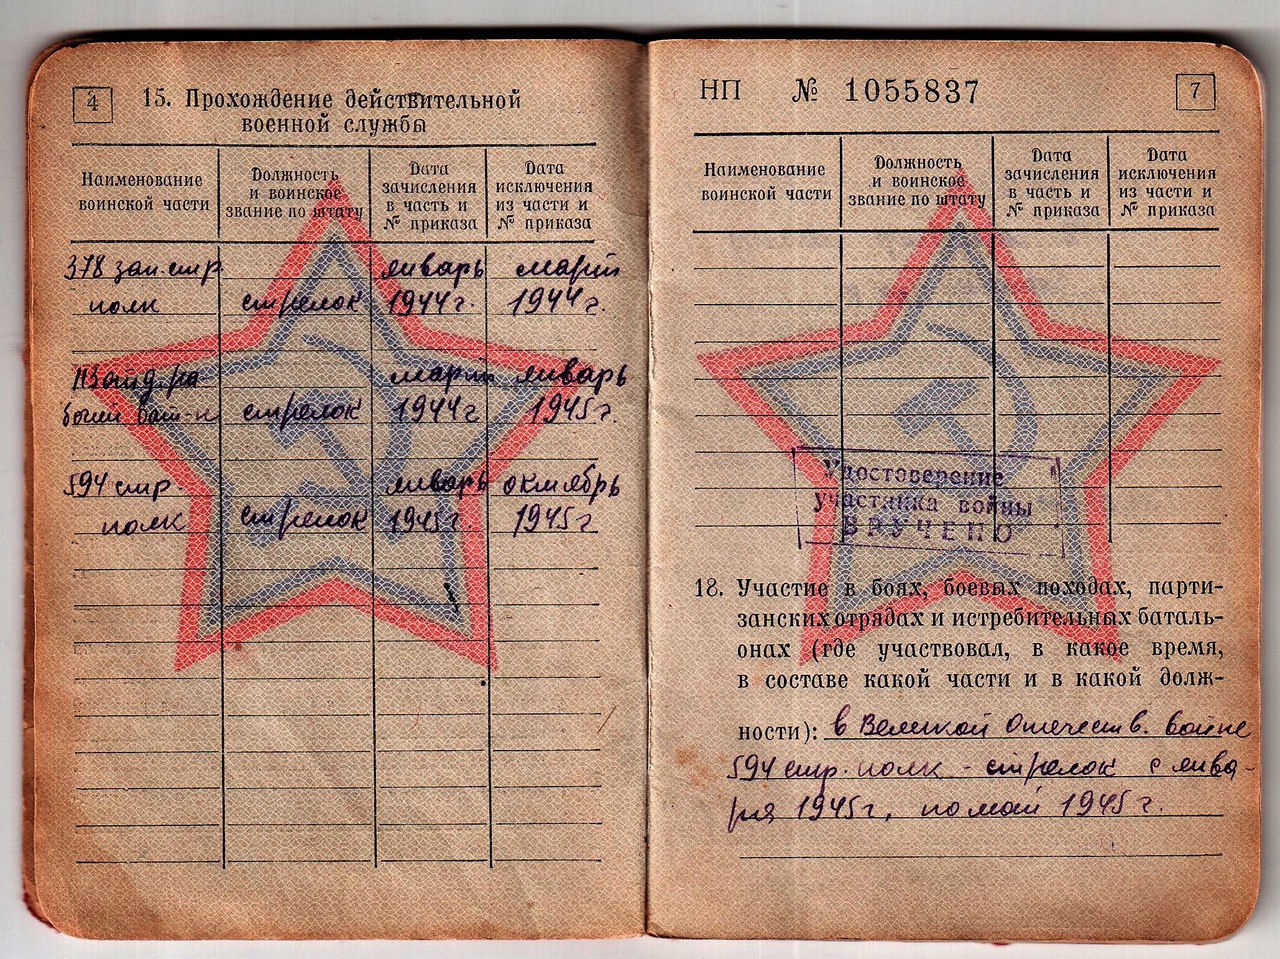 4
15. Прохождение действительной
военной службы
Наименование
воинской части
Должность
и воинское
звание по штату
Дата
зачисления
в часть и
№ приказа
Дата
исключения
из части и
№ приказа
378 зап. стр.
полк
стрелок
январь
1944 г.
март
1944 г.
ра-
бочий бат-н
стрелок
март
1944 г
январь
1945 г.
594 стр.
полк
стрелок
январь
1945 г.
октябрь
1945 г
НП № 1055837
7
Наименование
воинской части
Должность
и воинское
звание по штату
Дата
зачисления
в часть и
№ приказа
Дата
исключения
из части и
№ приказа
Удостоверение
участника войны
ВРУЧЕНО
18. Участие в боях, боевых походах, парти-
занских отрядах и истребительных баталь-
онах (где участвовал, в какое время,
в составе какой части и в какой долж-
ности): в Великой Отечеств. войне
594 стр. полк - стрелок с янва-
ря 1945 г. по май 1945 г.